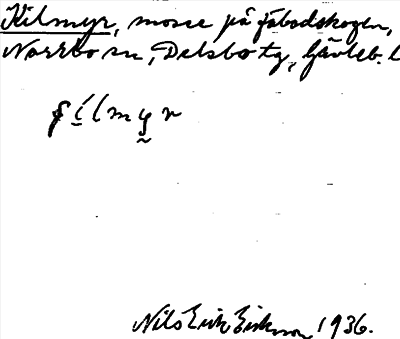 Kilmyr, mosse på fäbodskogen,
Norrbo sn, Delsbo tg, Gävleb. l
Nils Erik Eriksson 1936.